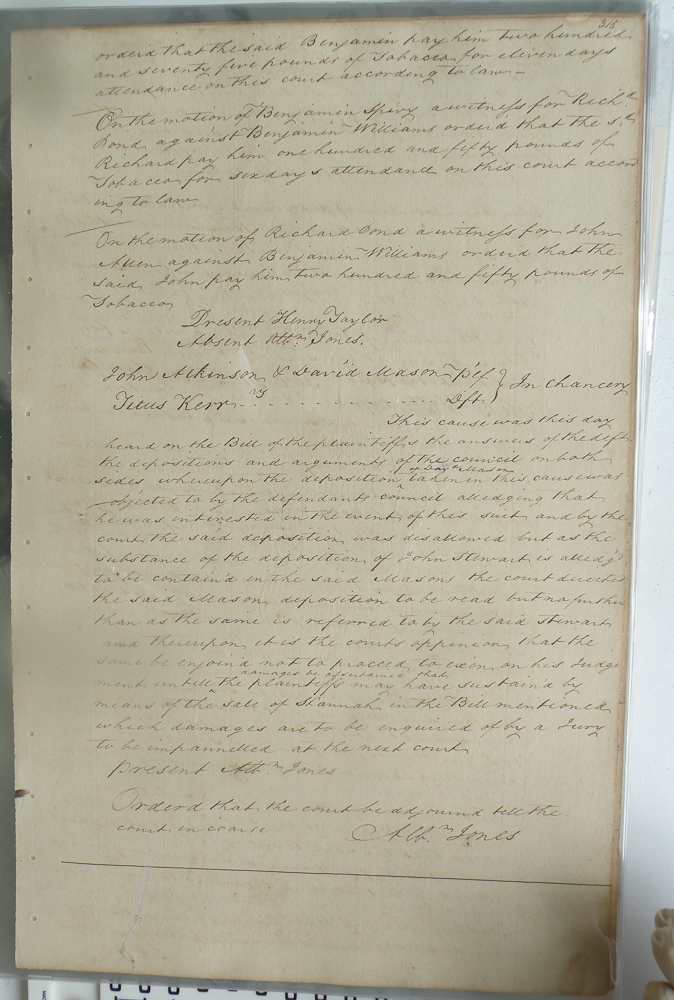 315
orderd that the said Benjamin pay him two hundred
and seventy five pounds of Tobacco for eleven days
attendance on this court according to law
On the motion of Benjamin Spivy a witness for Richd.
Pond against Benjamin Williams orderd that the sd.
Richard pay him one hundred and fifty pounds of
Tobacco for six days attendance on this court accord
ing to law
On the motion of Richard Pond a witness for John
Allen against Benjamin Williams orderd that the
said John pay him two hundred and fifty pounds of
Tobacco
Present Henry Taylor
Absent Albn. Jones.
John Atkinson & David Mason Plf } In chancery
vs
Titus Kerr . . . . . . . . . . . . . . Dft.
This cause was this day
heard on the Bill of the plaintiffs the answers of the deft.
the depositions and arguments of the council on both
of Davd. Mason
sides whereupon the deposition ^ taken in this cause was
objected to by the defendants council alledging that
he was interested in the event of this suit and by the
court the said deposition was disallowed but as the
substance of the deposition of John Stewart is alledg'd
to be contain'd in the said Masons the court directed
the said Mason deposition to be read but no further
than as the same is referred to by the said Stewart
and thereupon it is the courts oppinion that the
same be enjoin'd not to proceed to exon. on his Judge
damages be assertained that
ment untill the plaintiffs may have sustain'd by
means of the sale of Shannah in the Bill mentioned
which damages are to be enquired of by a Jury
to be impannelled at the next court
Present Albn. Jones
Orderd that the court be adjournd till the
court in coarse
Albn. Jones